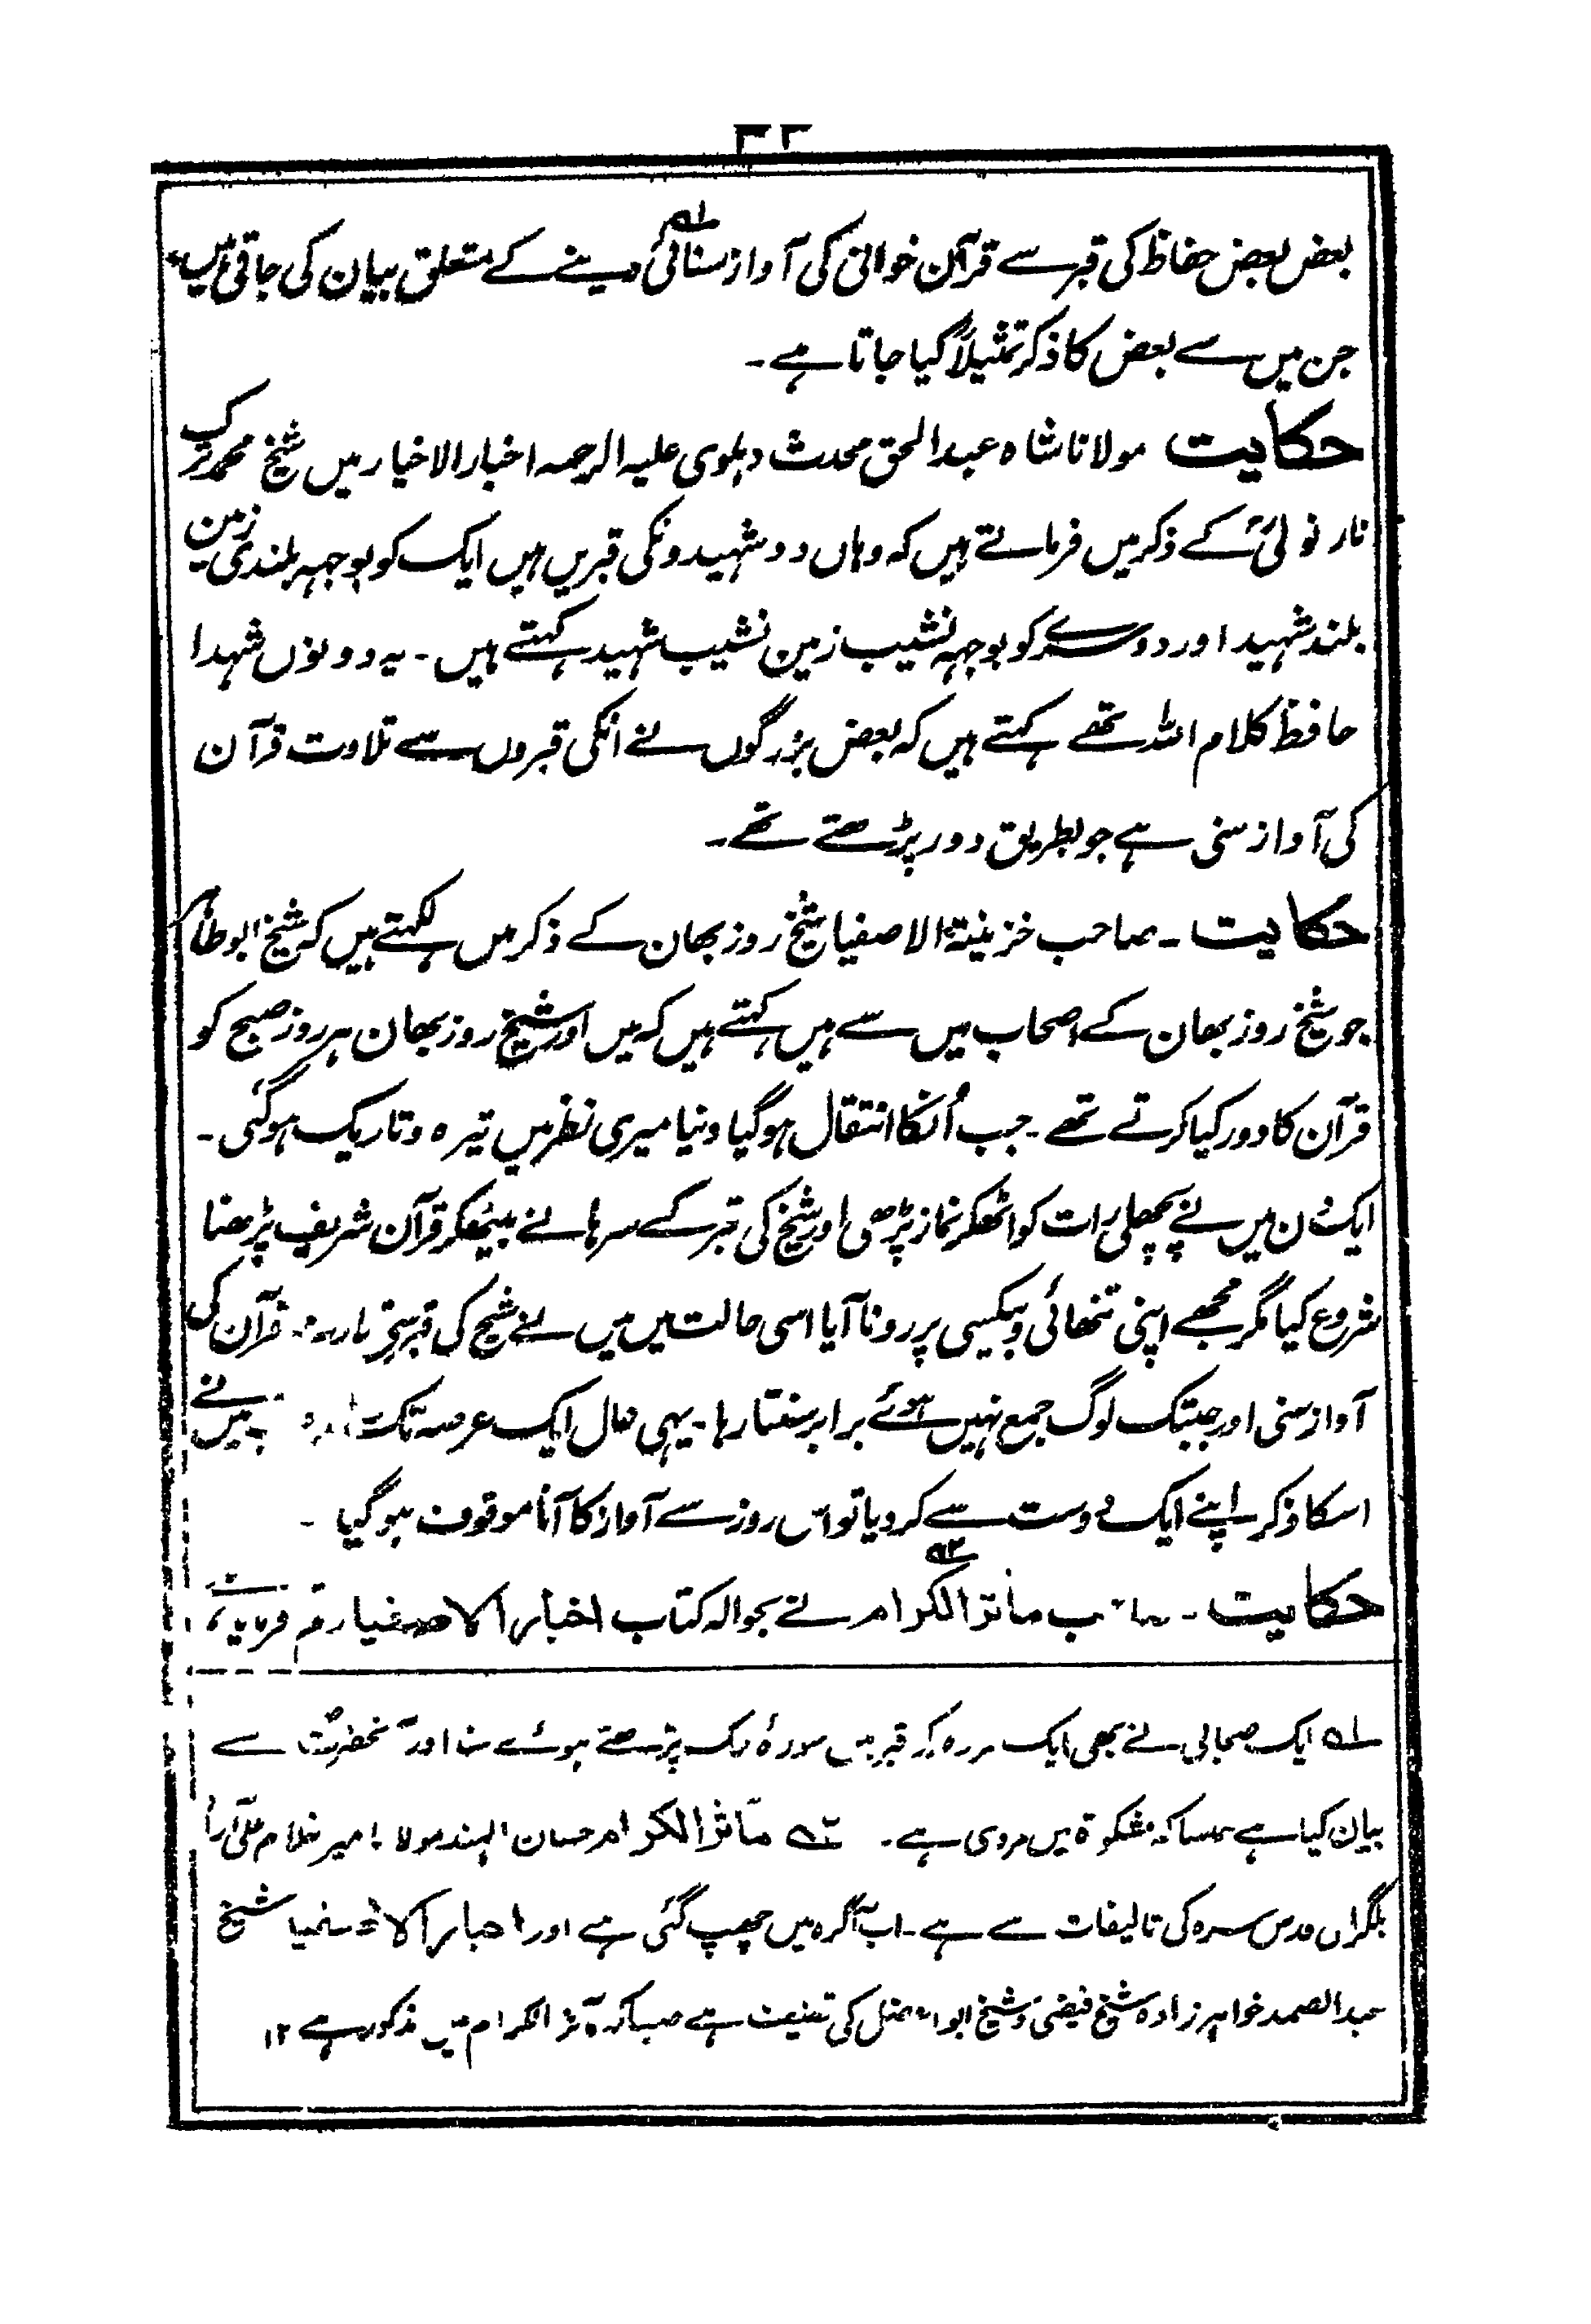 بعض بعض حفاظ کی قبر سے قرآن خوانی کی آواز سنائی۱؎ دینے کے متعلق بیان کی جاتی ہیں
جن میں سے بعض کا ذکر تمثیلاً کیا جاتا ہے۔
حکایت مولانا شاہ عبدالحق محدث دہلوی علیہ الرحمہ اخبار الاخیار میں شیخ محمد ترک
نارنولیؒ کے ذکر میں فرماتے ہیں کہ وہاں دو شہیدونکی قبریں ہیں ایک کو بوجہہ بلندی زمین
بلند شہید اور دوسرے کو بوجہہ نشیب زمین نشیب شہید کہتے ہیں۔ یہ دونوں شہدا
حافظ کلام اللہ تھے کہتے ہیں کہ بعض بزرگوں نے انکی قبروں سے تلاوت قرآن
کی آواز سنی ہے جو بطریق دور پڑھتے تھے۔
حکایت ۔ صاحب خزینۃ الاصفیا شیخ روز بھان کے ذکر میں لکہتے ہیں کہ شیخ ابو طاہر
جو شیخ روز بھان کے اصحاب میں سے ہیں کہتے ہیں کہ میں اور شیخ روز بھان ہر روز صبح کو
قرآن کا دور کیا کرتے تھے۔ جب اُنکا انتقال ہوگیا دنیا میری نظر میں تیرہ و تاریک ہوگئی۔
ایک دن میں نے پچھلی رات کو اٹھکر نماز پڑھی اور شیخ کی قبر کے سرہانے بیٹھکر قرآن شریف پڑھنا
شروع کیا مگر مجھے اپنی تنھائی و بیکسی پر رونا آیا اسی حالت میں میں نے شیخ کی قبر قرآن کی
آواز سنی اور جبتک لوگ جمع نہیں ہوئے برابر سنتا رہا۔ یہی حال ایک عرصہ تک میں نے
اسکا ذکر اپنے ایک دوست سے کردیا تو اس روز سے آواز کا آنا موقوف ہوگیا ۔
حکایت ۔ صاحب ماثر الکرام۲؎ نے بحوالہ کتاب اخبار الاصفیا رقم
۱؎ ایک صحابی نے بھی ایک مردہ کو قبر میں سورۂ ملک پڑھتے ہوئے سنا اور آنحضرتؐ سے
بیان کیا ہے جیسا کہ مشکوۃ میں مروی ہے۔ ۲؎ مآثر الکرام حسان الہند مولانا میر غلام علی آزاد
بلگرامی قدس سرہ کی تالیفات سے ہے۔ اب آگرہ میں چھپ گئی ہے اور اخبار الاصفیا شیخ
عبدالصمد خواہر زادہ شیخ فیضی و شیخ ابوالفضل کی تصنیف ہے جیسا کہ مآثر الکرام میں مذکور ہے ۱۲